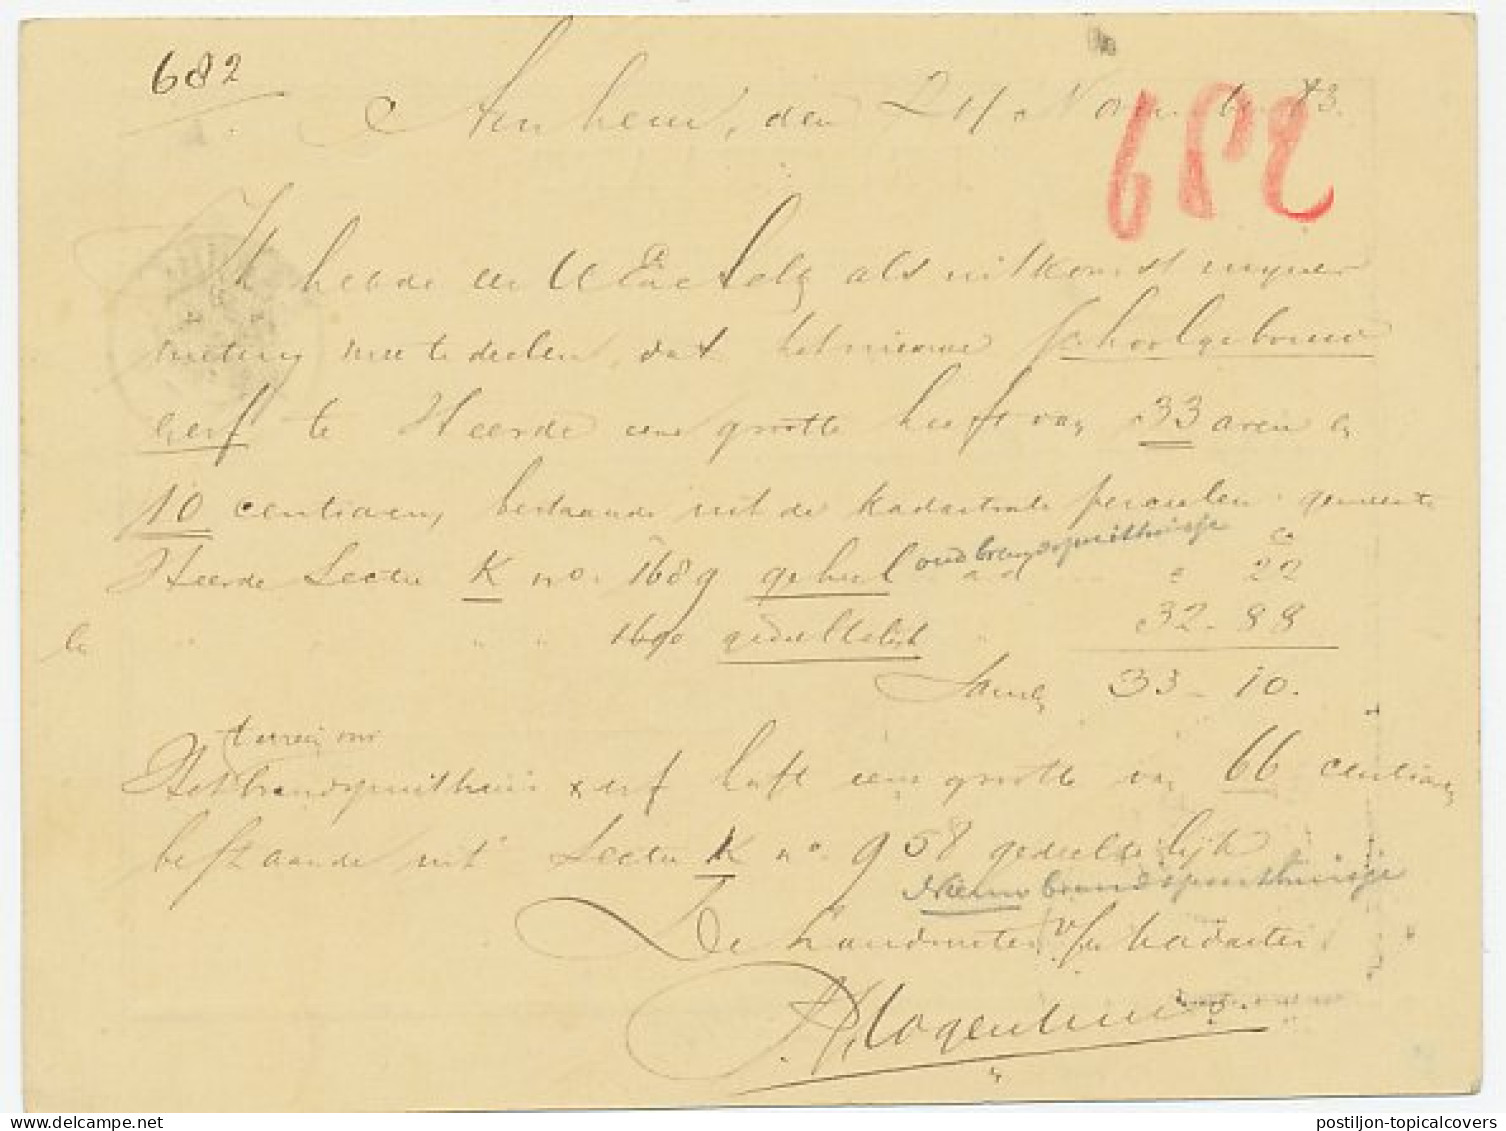 682
Arnhem, den 24 Novemb. 83.
682
Ik heb de eer UEdAchtb als uitkomst mijner
meting mee te deelen, dat het nieuwe schoolgebouw
erf te Heerde eene grootte heeft van 33 aren en
10 centiaren, bestaande uit de kadastrale perceelen gemeente
Heerde Sectie K no. 1689 geheel oud brandspuithuisje 22
en " " " 1690 gedeeltelijk " 32-88
Samen 33-10.
terrein voor
Het brandspuithuis & erf heeft eene grootte van 66 centiaren
bestaande uit Sectie K no. 958 gedeeltelijk
Nieuw brandspuithuisje
De Landmeter v/h kadaster
postiljon-topicalcovers